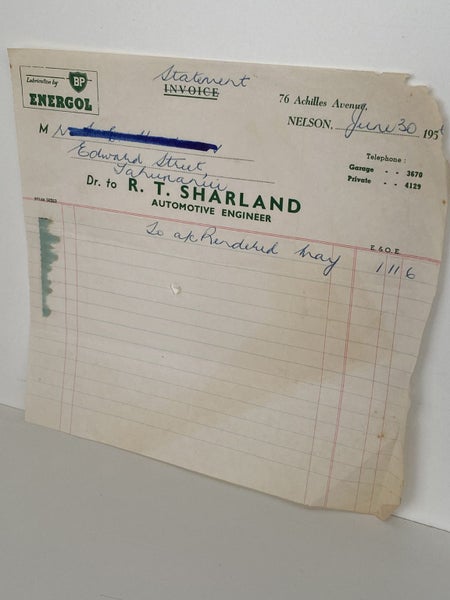 Lubrication by
BP
ENERGOL
Statement
INVOICE
76 Achilles Avenue,
NELSON, June 30 195
M
Edward Street,
Tahunanui
Telephone:
Garage - - 3670
Private - - 4129
Dr. to R. T. SHARLAND
AUTOMOTIVE ENGINEER
E. & O. E.
To a/c Rendered May 1 11 6